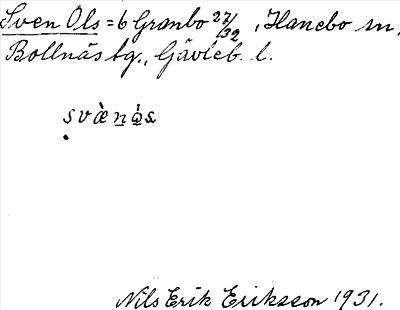 Sven Ols = 6 Granbo 27/32, Hanebo sn,
Bollnäs tg., Gävleb. l.
svæ̀nọ́s
Nils Erik Eriksson 1931.